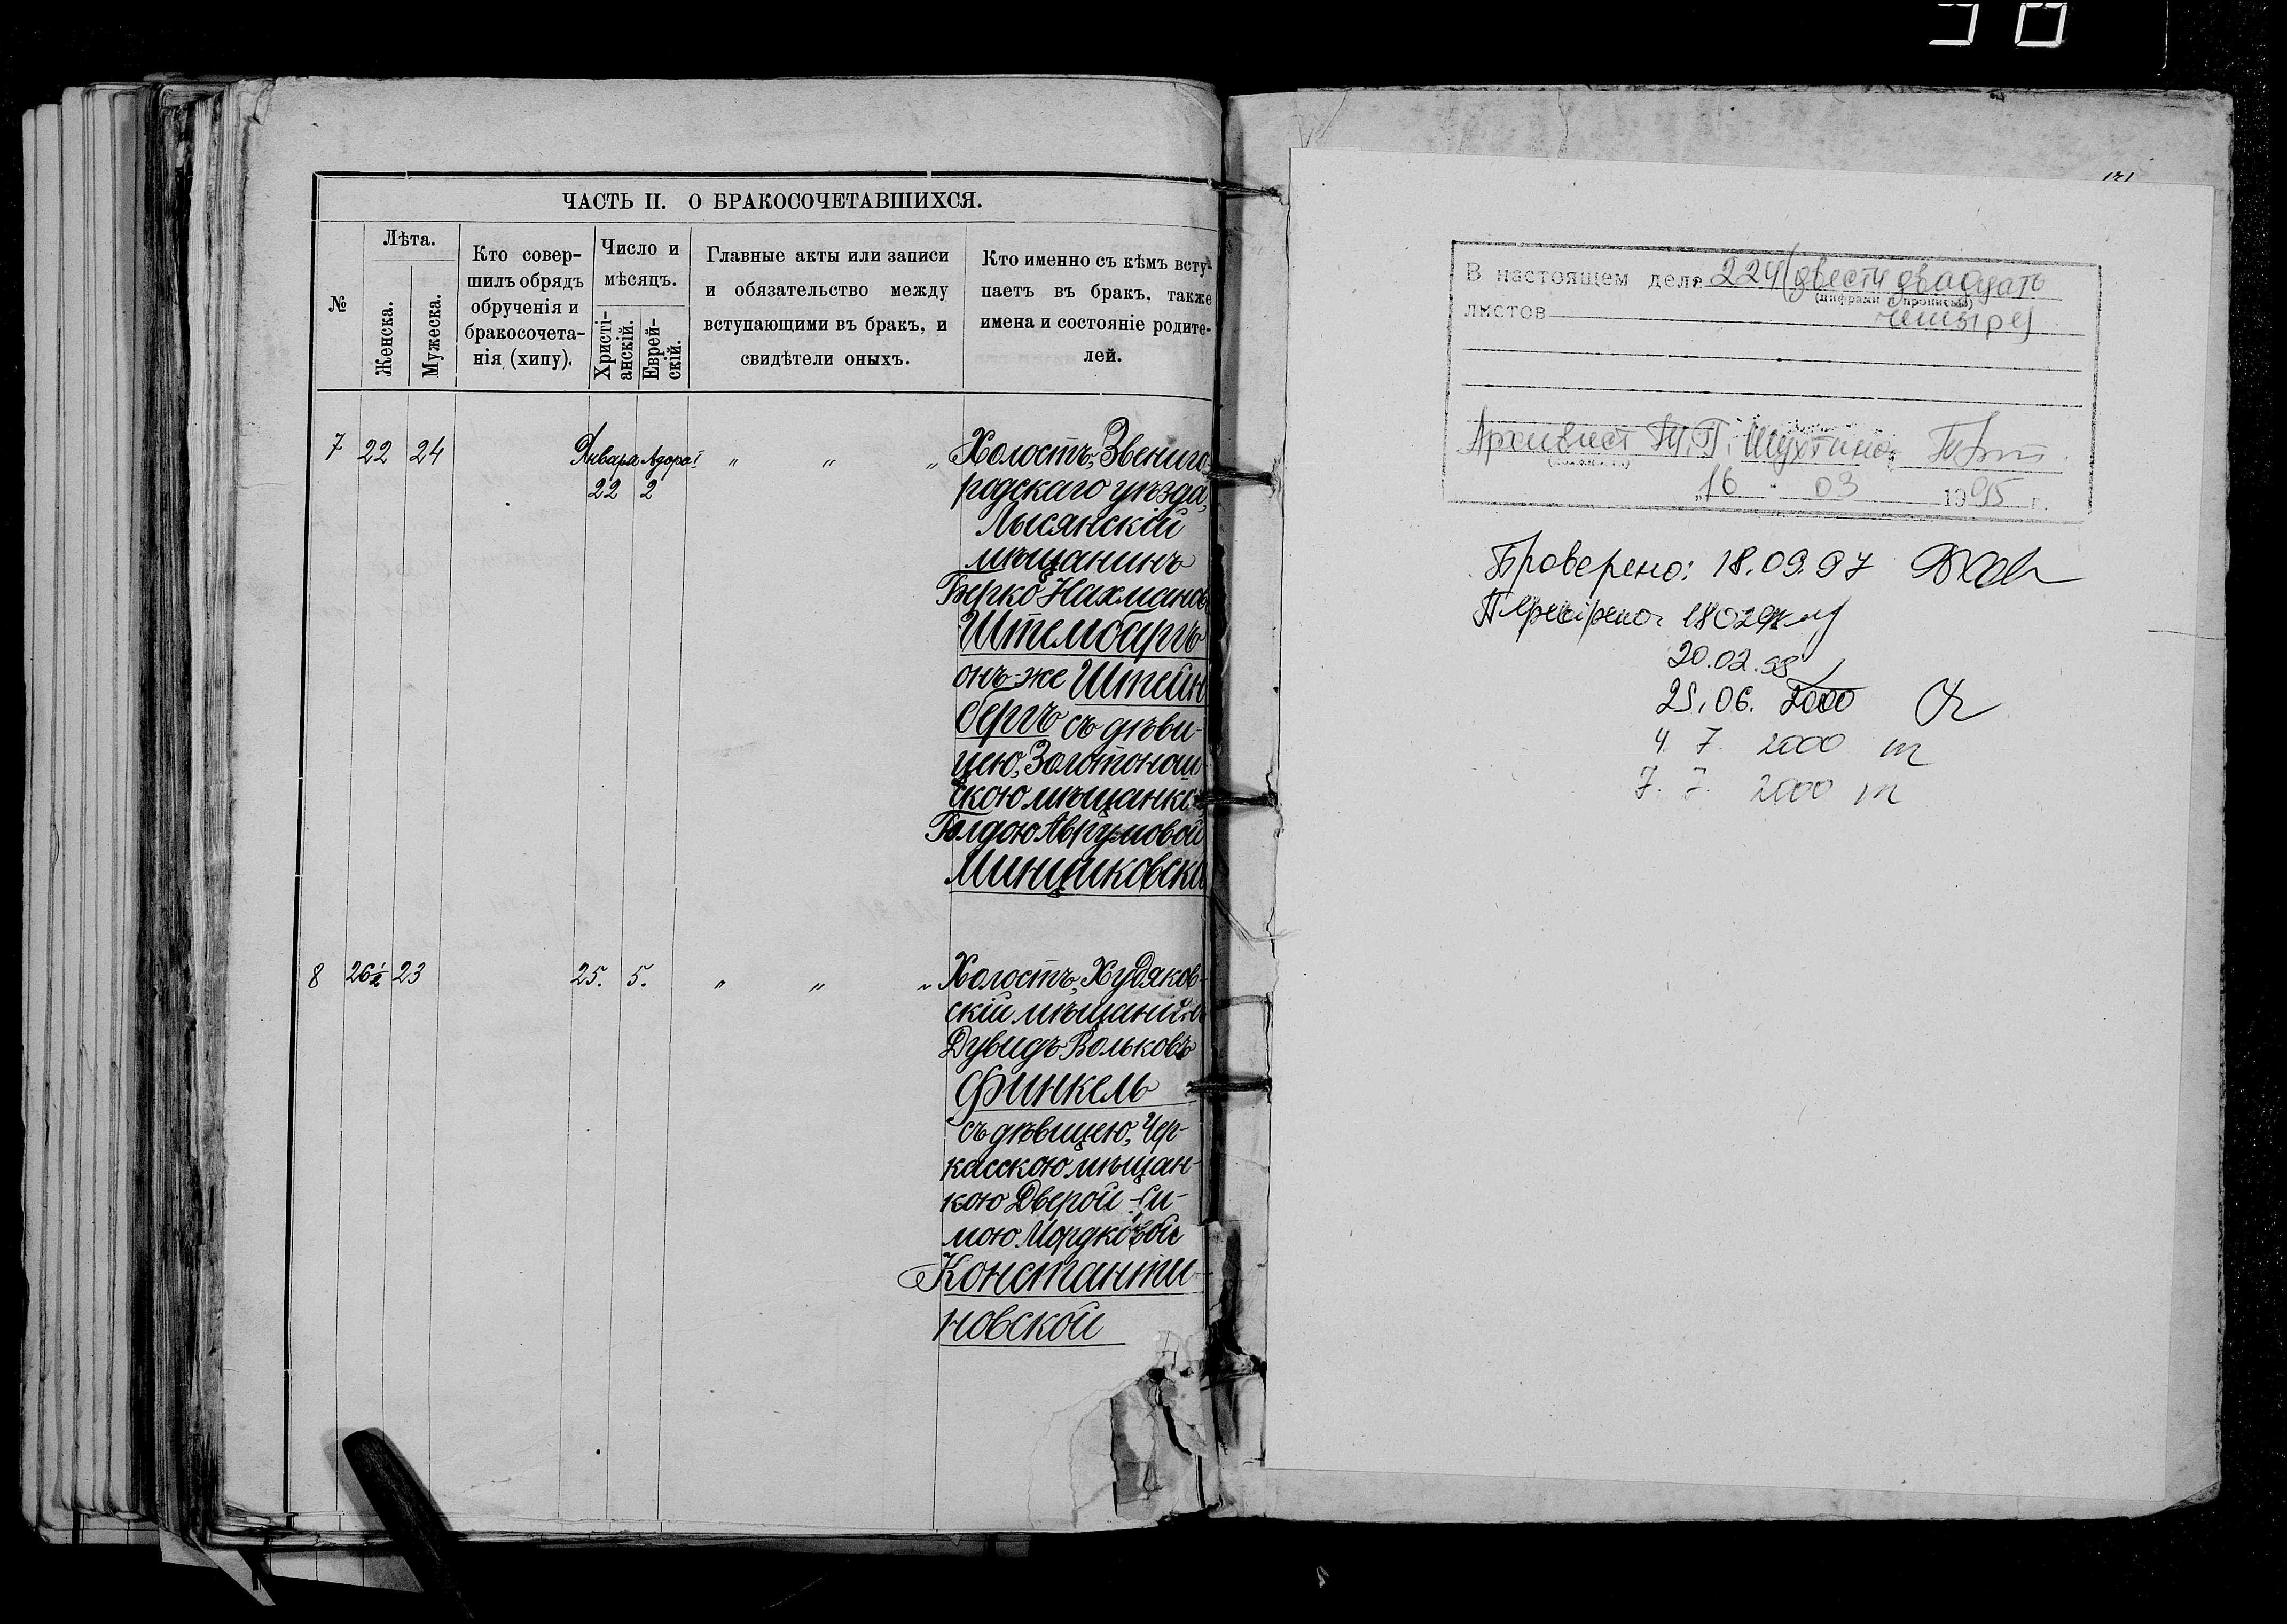 ЧАСТЬ II. О БРАКОСОЧЕТАВШИХСЯ.
№
Лѣта.
Женска.
Мужеска.
Кто совер-
шилъ обрядъ
обрученія и
бракосочета-
нія (хипу).
Число и
мѣсяцъ.
Христі-
анскій.
Еврей-
скій.
Главные акты или записи
и обязательство между
вступающими въ бракъ, и
свидѣтели оныхъ.
Кто именно съ кѣмъ всту-
паетъ въ бракъ, также
имена и состояніе родите-
лей.
7 22 24 Января Адора I " " " Холостъ, Звениго-
22 2 родскаго уѣзда,
Лысянскій
мѣщанинъ
Берко Нахмановъ
Штембаргъ
онъ-же Штейн
бергъ съ дѣви-
цею, Золотонош-
скою мѣщанко
Голдою Аврумовой
Минциковско
8 26½ 23 25. 5. " " " Холостъ, Худяков-
скій мѣщанинъ
Дувидъ Вольковъ
Финкель
съ дѣвицею, Чер-
касскою мѣщан-
кою Дверой-Си-
мою Мордковой
Константи-
новской
В настоящем деле 224 (двести двадцать
(цифрами и прописью)
листов четыре)
Архивист
16 03 1995 г.
Проверено: 18.09.97
20.02.98
25.06. 2000
4. 7. 2000
7. 7. 2000